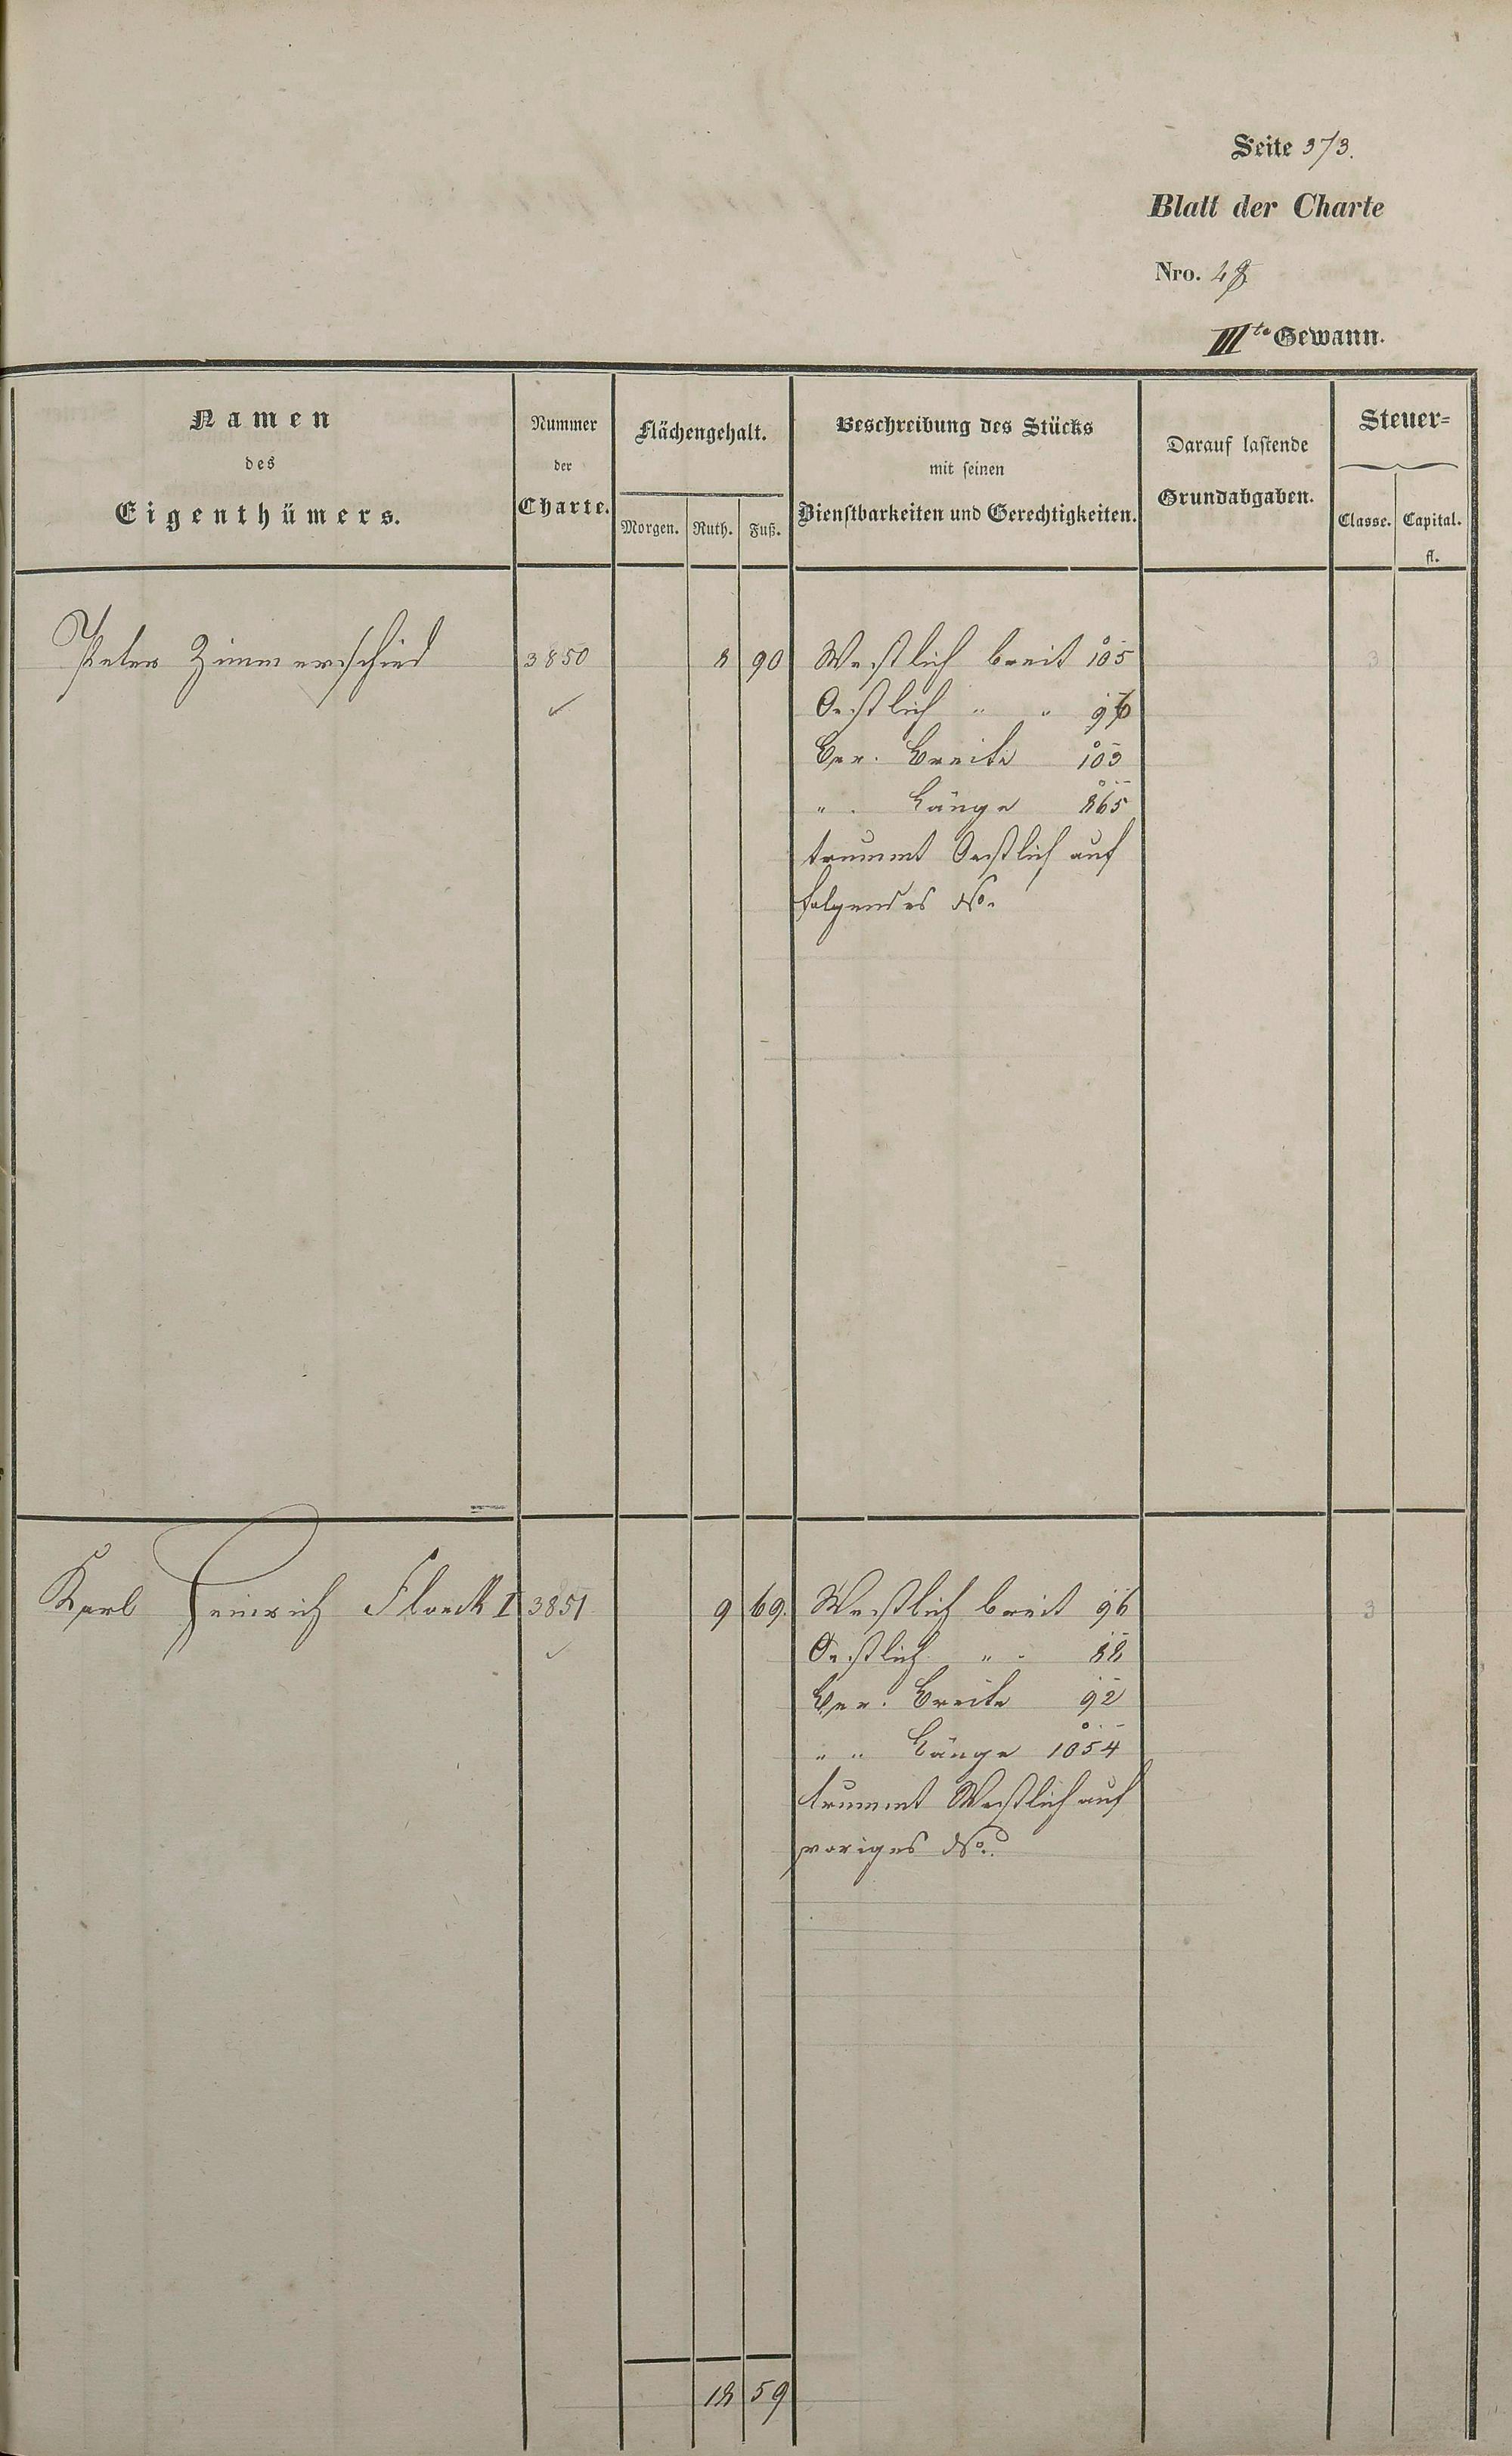 Seite 373.
Blatt der Charte
Nro. 48
IIIte Gewann.
Namen
des
Eigenthümers.
Nummer
der
Charte.
Flächengehalt.
Morgen. Ruth. Fuß.
Beschreibung des Stücks
mit seinen
Dienstbarkeiten und Gerechtigkeiten.
Darauf lastende
Grundabgaben.
Steuer=
Classe. Capital.
fl.
Peter Zimmerschied 3850 8 90 Westlich breit 105 3
Oestlich " " 96
Ber. Breite 103
" . Länge 865
trummt Oestlich auf
folgendes No.
Karl Heinrich Floeck I 3851 9 69. Westlich breit 96 3
Oestlich " " 88
Ber. Breite 92
" " Länge 1054
trummt Westlich auf
voriges No.
18 59